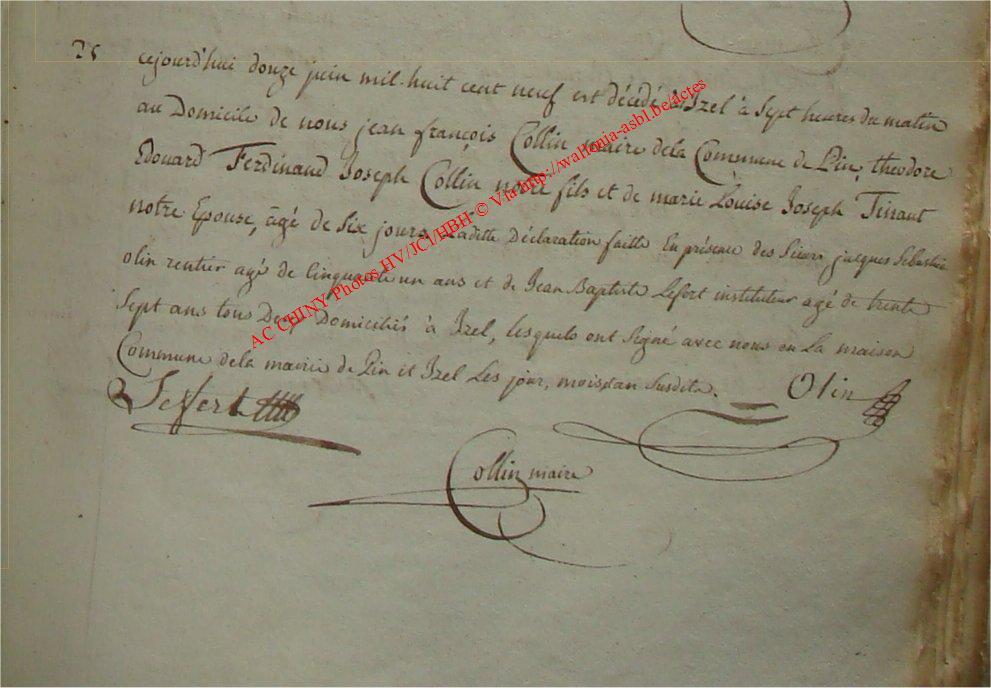 25
cejourd'hui douze juin mil-huit cent neuf est décédé à Izel à Sept heures du matin
au Domicile de nous jean françois Collin maire dela Commune de Pin, theodore
Edouard Ferdinand Joseph Collin notre fils et de marie Louise Joseph Tinant
notre Epouse, âgé de Six jours, Laditte Déclaration faitte En présence des Sieurs jacques Sebastien
olin rentier agé de Cinquante un ans et de Jean Baptiste Lefort instituteur agé de trente
Sept ans tous Deux Domiciliés à Izel, lesquels ont Signé avec nous en La maison
Commune dela mairie de Pin et Izel Les jour, mois et an Susdits.
Olin
Leffort
Collin maire
AC CHINY Photos HV/JCI/HBH © Via http://wallonia-asbl.be/actes